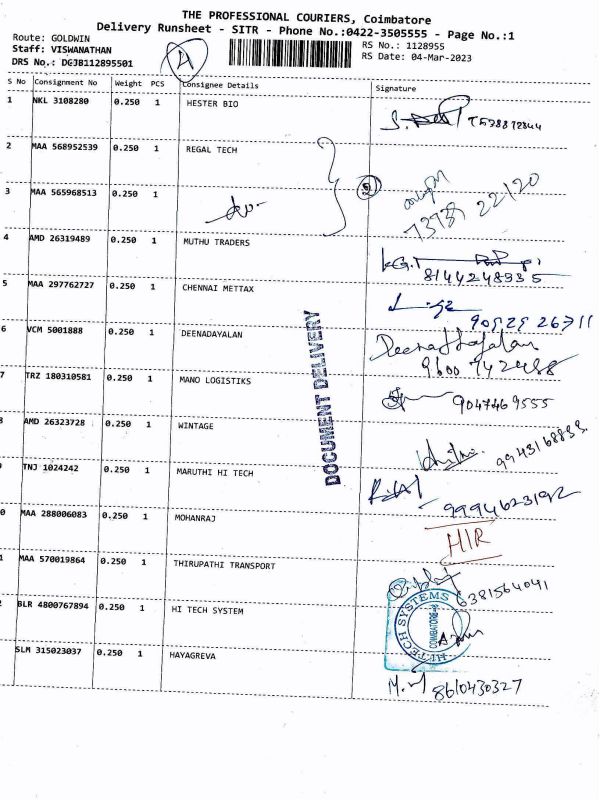 THE PROFESSIONAL COURIERS, Coimbatore
Delivery Runsheet - SITR - Phone No.:0422-3505555 - Page No.:1
Route: GOLDWIN
Staff: VISWANATHAN
DRS No.: DGJB112895501
A
RS No.: 1128955
RS Date: 04-Mar-2023
S No Consignment No Weight PCS Consignee Details Signature
1 NKL 3108280 0.250 1 HESTER BIO
2 MAA 568952539 0.250 1 REGAL TECH
3 MAA 565968513 0.250 1
2
22/20
4 AMD 26319489 0.250 1 MUTHU TRADERS
8144248935
5 MAA 297762727 0.250 1 CHENNAI METTAX
90929 26711
6 VCM 5001888 0.250 1 DEENADAYALAN
Deenadhayalan
9600 742488
7 TRZ 180310581 0.250 1 MANO LOGISTIKS
9047469555
8 AMD 26323728 0.250 1 WINTAGE
9943168833
9 TNJ 1024242 0.250 1 MARUTHI HI TECH
9994623192
0 MAA 288006083 0.250 1 MOHANRAJ
HIR
1 MAA 570019864 0.250 1 THIRUPATHI TRANSPORT
6381564041
2 BLR 4800767894 0.250 1 HI TECH SYSTEM
HI-TECH SYSTEMS
COIMBATORE
SLM 315023037 0.250 1 HAYAGREVA
8610430327
DOCUMENT DELIVERY